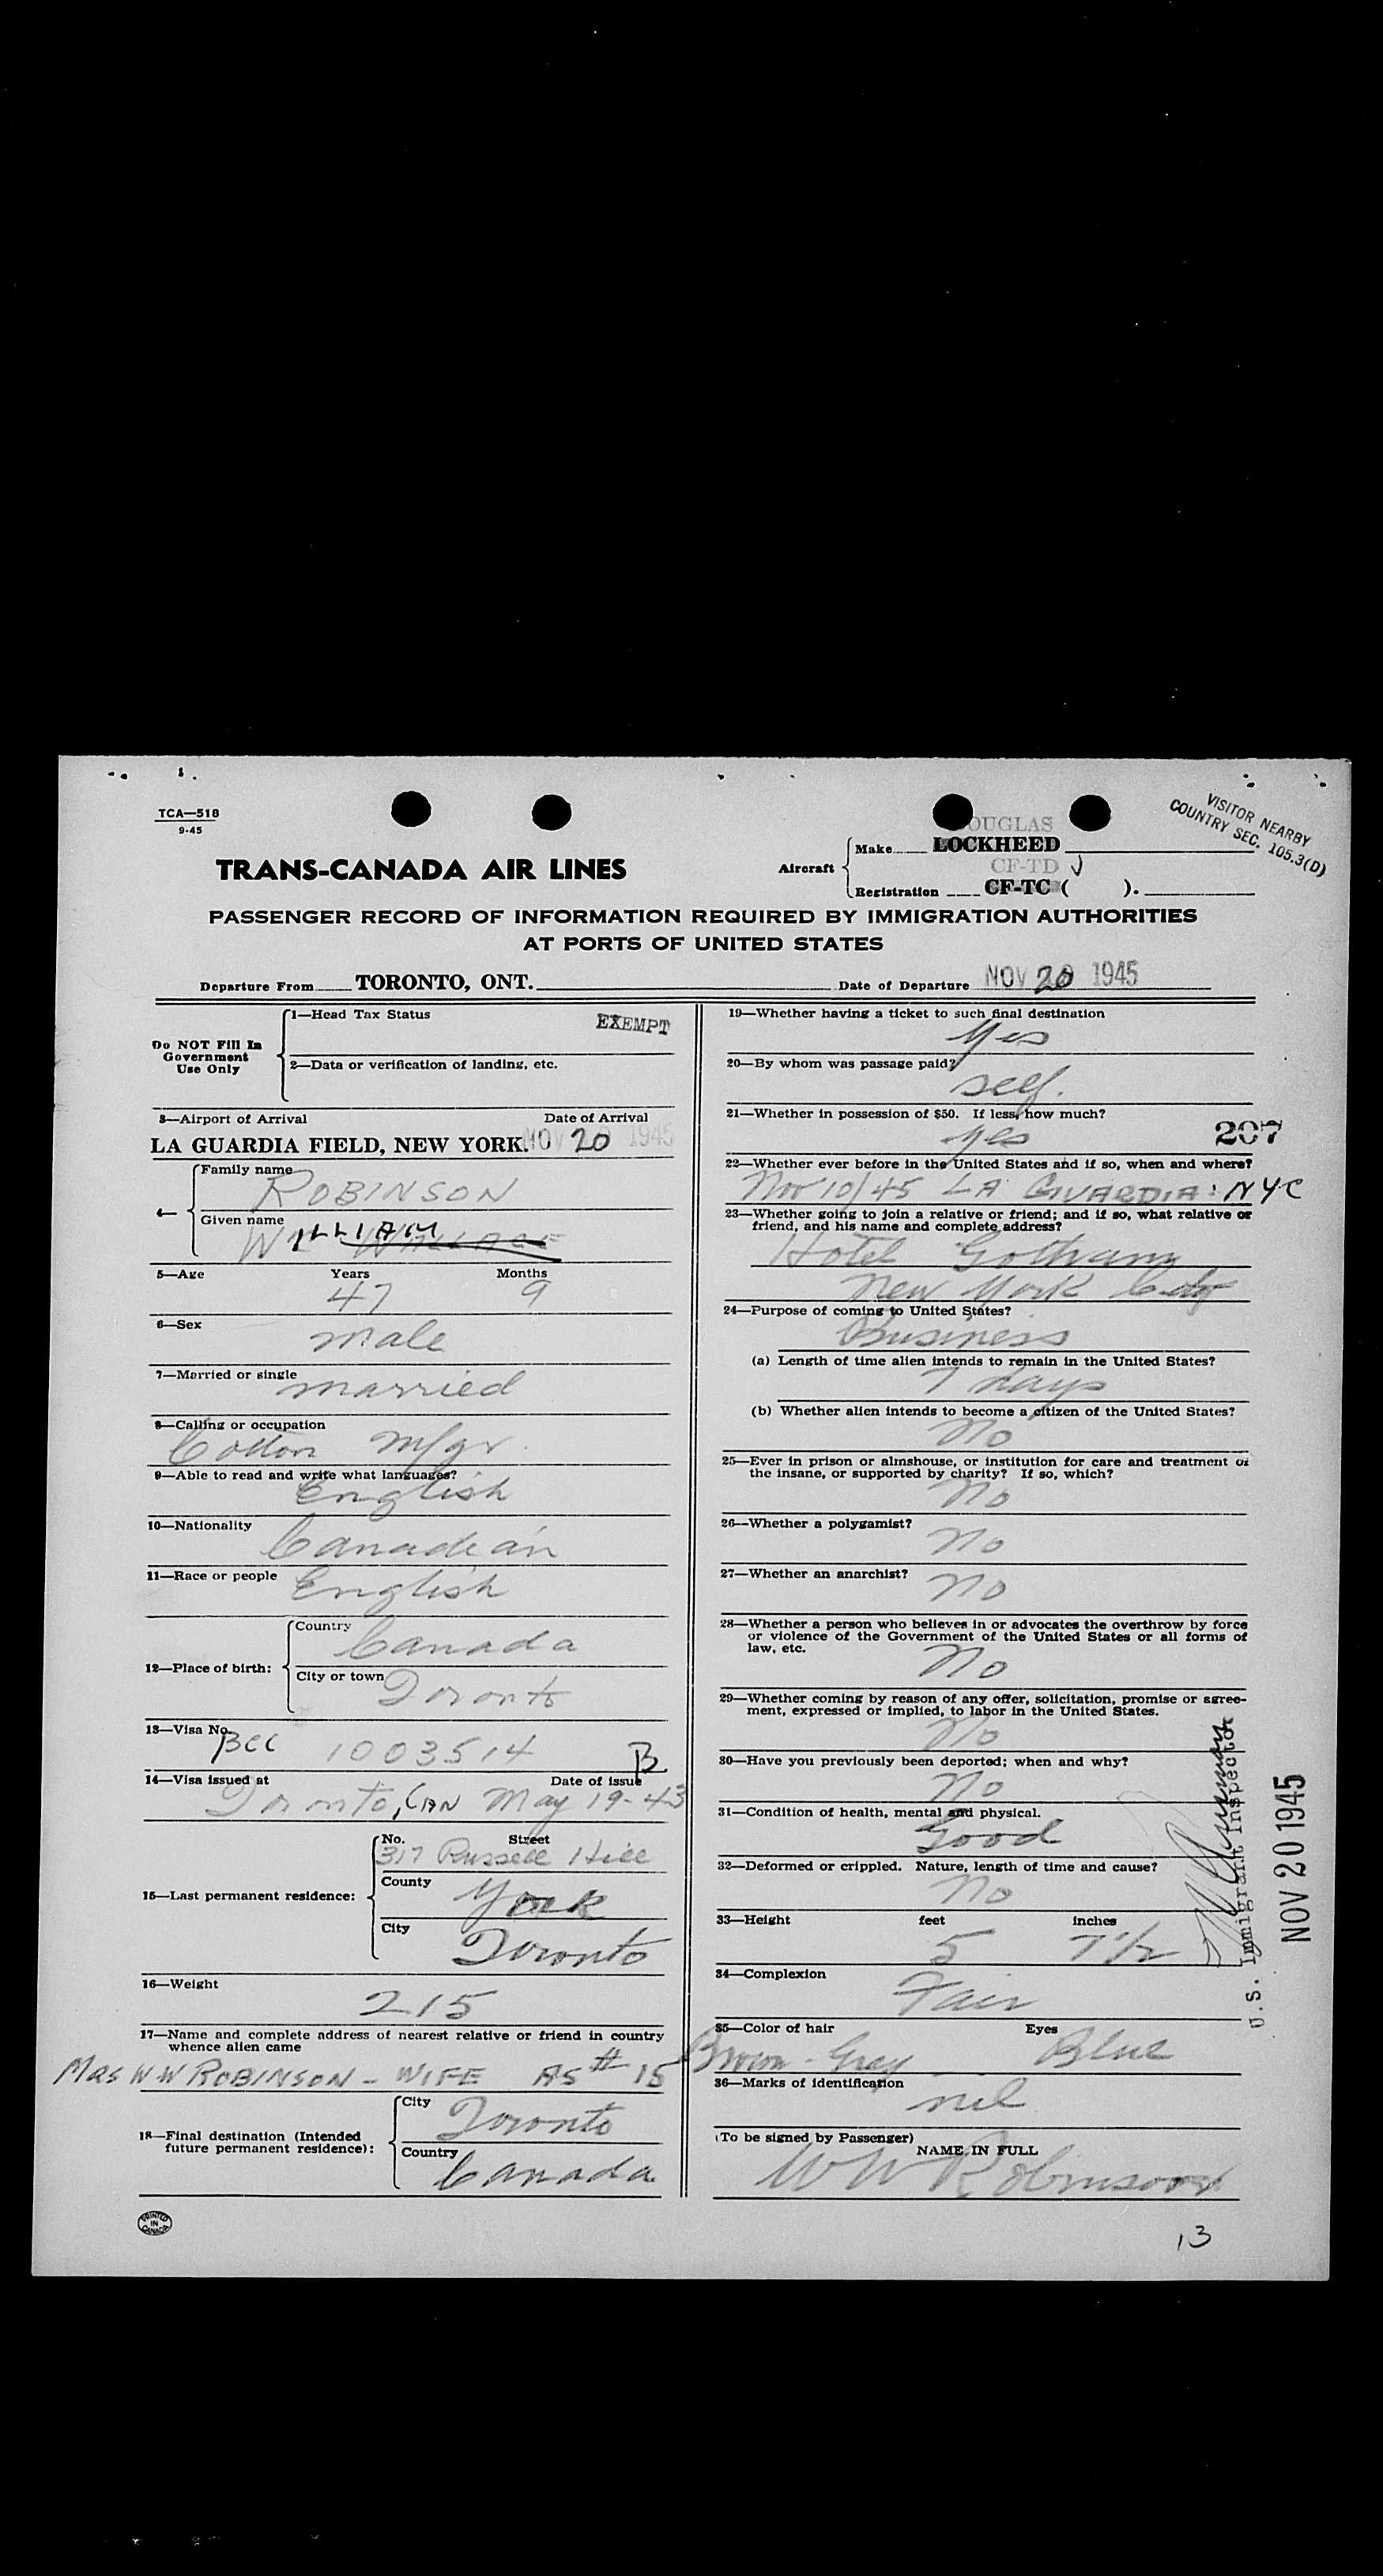 TCA—518
9-45
VISITOR NEARBY
COUNTRY SEC. 105.3(D)
DOUGLAS
TRANS-CANADA AIR LINES
Aircraft
Make LOCKHEED
CF-TD
Registration CF-TC ( ).
PASSENGER RECORD OF INFORMATION REQUIRED BY IMMIGRATION AUTHORITIES
AT PORTS OF UNITED STATES
Departure From TORONTO, ONT. Date of Departure NOV 20 1945
Do NOT Fill In
Government
Use Only
1—Head Tax Status EXEMPT
2—Data or verification of landing, etc.
3—Airport of Arrival Date of Arrival
LA GUARDIA FIELD, NEW YORK. NOV 20 1945
4— Family name
ROBINSON
Given name
WILLIAM WALLACE
5—Age Years Months
47 9
6—Sex
male
7—Married or single
married
8—Calling or occupation
Cotton m/gr.
9—Able to read and write what languages?
English
10—Nationality
Canadian
11—Race or people
English
12—Place of birth:
Country
Canada
City or town
Toronto
13—Visa No.
BCC 1003514 B
14—Visa issued at Date of issue
Toronto, CAN May 19-43
15—Last permanent residence:
No. Street
317 Russell Hill
County
York
City
Toronto
16—Weight
215
17—Name and complete address of nearest relative or friend in country
whence alien came
MRS W W ROBINSON - WIFE AS # 15
18—Final destination (Intended
future permanent residence):
City
Toronto
Country
Canada
PRINTED
IN
CANADA
19—Whether having a ticket to such final destination
Yes
20—By whom was passage paid?
self.
21—Whether in possession of $50. If less, how much?
yes
207
22—Whether ever before in the United States and if so, when and where?
Nov 10/45 LA GUARDIA: NYC
23—Whether going to join a relative or friend; and if so, what relative or
friend, and his name and complete address?
Hotel Gotham
New York City
24—Purpose of coming to United States?
Business
(a) Length of time alien intends to remain in the United States?
7 days
(b) Whether alien intends to become a citizen of the United States?
No
25—Ever in prison or almshouse, or institution for care and treatment of
the insane, or supported by charity? If so, which?
No
26—Whether a polygamist?
No
27—Whether an anarchist?
No
28—Whether a person who believes in or advocates the overthrow by force
or violence of the Government of the United States or all forms of
law, etc.
No
29—Whether coming by reason of any offer, solicitation, promise or agree-
ment, expressed or implied, to labor in the United States.
No
30—Have you previously been deported; when and why?
No
31—Condition of health, mental and physical.
Good
32—Deformed or crippled. Nature, length of time and cause?
No
33—Height feet inches
5 7 1/2
34—Complexion
Fair
35—Color of hair Eyes
Brown - Grey Blue
36—Marks of identification
nil
(To be signed by Passenger)
NAME IN FULL
W W Robinson
U.S. Immigrant Inspector
NOV 20 1945
13